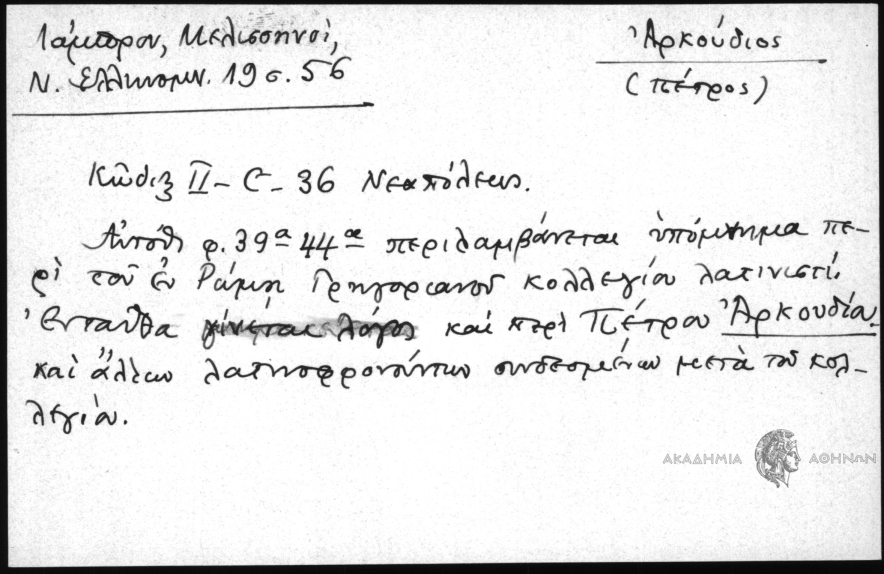 Λάμπρου, Μελισσηνοί,
Ν. Ελληνομν. 19 σ. 56
Ἀρκούδιος
(Πέτρος)
Κῶδιξ II - C - 36 Νεαπόλεως.
Αὐτόθι φ. 39α 44α περιλαμβάνεται ὑπόμνημα πε-
ρὶ τοῦ ἐν Ρώμῃ Γρηγοριανοῦ κολλεγίου λατινιστί.
Ἐνταῦθα γίνεται λόγος καὶ περὶ Πέτρου Ἀρκουδίου
καὶ ἄλλων λατινοφρονούντων συνδεομένων μετὰ τοῦ κολ-
λεγίου.
ΑΚΑΔΗΜΙΑ ΑΘΗΝΩΝ